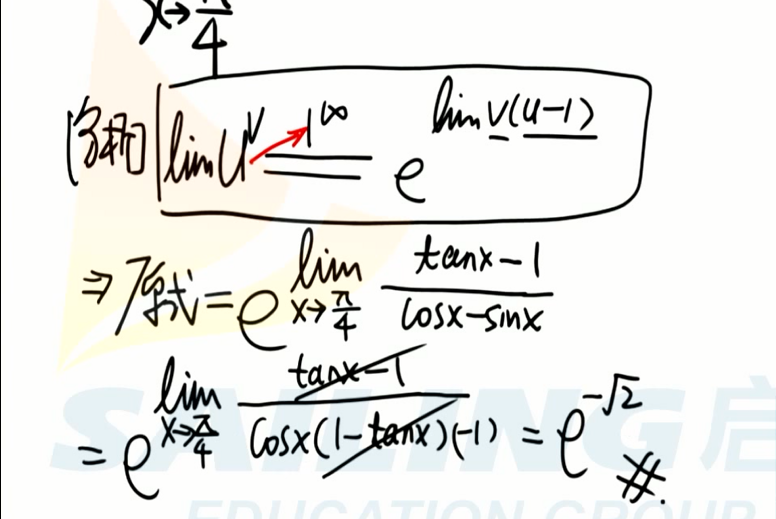 x→π/4
[分析] lim u^v 1^∞ = e^(lim v(u-1))
⇒ 原式 = e^(lim x→π/4 (tanx-1)/(cosx-sinx))
= e^(lim x→π/4 (tanx-1)/(cosx(1-tanx)(-1))) = e^(-√2) #.
SAILING 启
EDUCATION GROUP